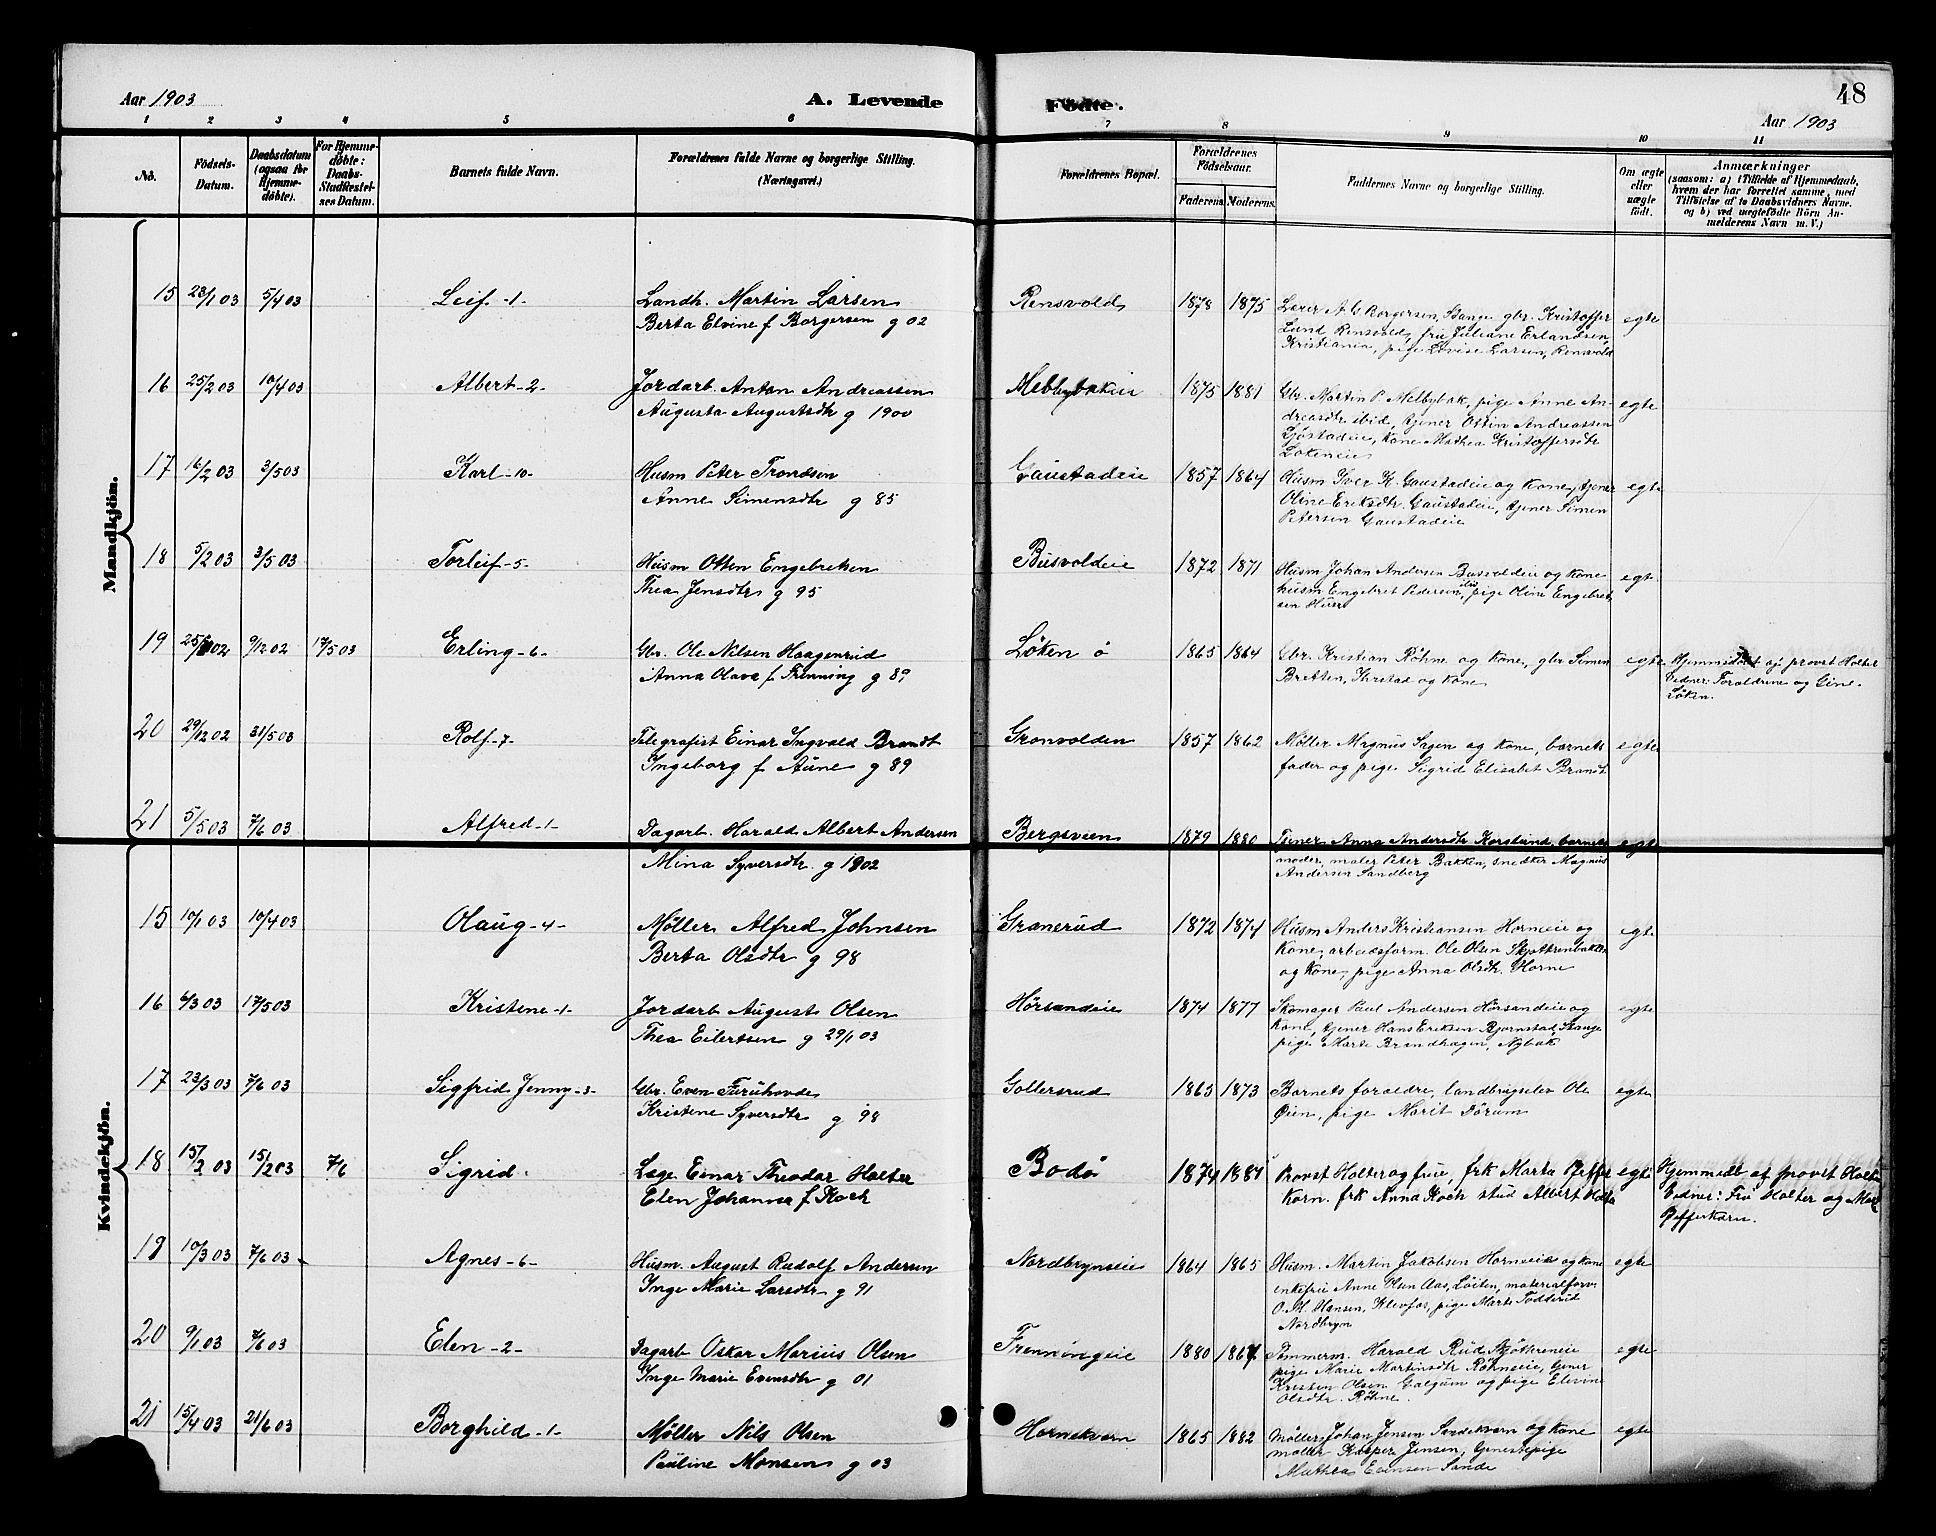 Aar 1903
A. Levende
Fødte.
48
Aar 1903
1 2 3 4 5 6 7 8 9 10 11
No.
Fødsels-
Datum.
Daabsdatum
(ogsaa for
Hjemme-
døbte).
For Hjemme-
døbte:
Daabs-
Stadfæstel-
ses Datum.
Barnets fulde Navn.
Forældrenes fulde Navne og borgerlige Stilling.
(Næringsvei.)
Forældrenes Bopæl.
Forældrenes
Fødselsaar.
Faderens. Moderens.
Faddernes Navne og borgerlige Stilling.
Om ægte
eller
uægte
født.
Anmærkninger
(saasom: a) i Tilfælde af Hjemmedaab,
hvem der har forrettet samme, med
Tilføielse af to Daabsvidners Navne.
og b) ved uegtefødte Börn An-
melderens Navn m. V.)
Mandkjön.
15 23/1 03 5/4 03 Leif -1- Landh. Martin Larsen Rensvold 1878 1875 Lærer A. C Borgersen, Stange gbr. Kristoffer egte
Berta Elvine f Borgersen g 02 Lund Rensvold, fru Juliane Erlandsen,
Kristiania, pige Lovise Larsen, Rensvold
16 25/2 03 10/4 03 Albert -2- Jordarb. Anton Andreassen Melbybakeie 1875 1881 Gbr. Martin P Melbybak, pige Anne An- egte
Augusta Augustsdtr g 1900 dreasdtr ibid, tjener Ottin Andreassen
Gjøstadeie, kone Mathea Kristoffersdtr
Løkeneie
17 16/2 03 3/5 03 Karl -10- Husm Peter Trondsen Gaustadeie 1857 1864 Husm Iver K. Gaustadeie og kone, tjener egte
Anne Simensdtr g 85 Oline Eriksdtr Gaustadeie, tjener Simen
Petersen Gaustadeie
18 5/2 03 3/5 03 Torleif -5- Husm Otten Engebretsen Busvoldeie 1872 1871 Husm Johan Andersen Busvoldeie og kone egte
Thea Jensdtr g 95 husm Engebret Pedersen, pige Oline Engebret
sen Huser
19 9/12 02 17/5 03 Erling -6- Gbr. Ole Nilsen Haagenrud Løken ø 1865 1864 Gbr. Kristian Røhne og kone, gbr Simen egte Hjemmedøbt af provst Holter
Anna Olava f Frenning g 89 Bretten, Ihrstad og kone Vidner: Forældrene og Gine
Løken.
20 29/12 02 31/5 03 Rolf -7- Telegrafist Einar Ingvald Brandt Grønvolden 1857 1862 Møller Magnus Sagen og kone, barnets egte
Ingeborg f Aune g 89 fader og pige Sigrid Elisabet Brandt
21 5/5 03 7/6 03 Alfred -1- Dagarb. Harald Albert Andersen Bergsveen 1879 1880 Tjener Anna Andersdtr Korslund, barnets egte
Mina Syversdtr g 1902 moder, maler Peter Bakken, snedker Magnus
Andersen Sandberg
Kvindekjön.
15 10/1 03 10/4 03 Olaug -4- Møller Alfred Johnsen Granerud 1872 1874 Husm Anders Kristiansen Horneeie og egte
Berta Olsdtr g 98 kone, arbeidsform. Ole Olsen Skjøttrenbakken
og kone, pige Anna Olsdtr. Horne
16 6/3 03 17/5 03 Kristene -1- Jordarb August Olsen Hørsandeie 1874 1877 Skomager Paul Andersen Hørsandeie og egte
Thea Eilertsen g 29/1 03 kone, tjener Hans Eriksen Bjørnstad, Stange
pige Marte Brandhagen, Nybak
17 23/3 03 7/6 03 Sigfrid Jenny -3- Gbr. Even Furuhovde Gollersrud 1863 1873 Barnets forældre, landbrugselev Ole egte
Kristene Syversdtr g 98 Øien, pige Marit Dørum
18 15/2 03 15/2 03 7/6 Sigrid Læge Einar Theodor Holter Bodø 1874 1881 Provst Holter og frue, frk Marta Pfeffer egte Hjemmedbt af provst Holter
Elen Johanna f Koch korn. frk Anna Koch stud Albert Holter Vidner: Fru Holter og Marta
Pfefferkorn.
19 10/3 03 7/6 03 Agnes -6- Husm. August Rudolf Andersen Nordbryneie 1864 1865 Husm. Martin Jakobsen Horneeie og kone egte
Inge Marie Larsdtr g 91 enkefru Anne Hun Aas, Løiten, materialforv.
O. M. Hansen, Klevfos, pige Marte Todderud
Nordbryn
20 9/1 03 7/6 03 Elen -2- Dagarb Oskar Marius Olsen Frenningeie 1880 Tømmerm. Harald Rud Skjøttreneie egte
Inge Marie Evensdtr g 01 pige Marie Martinsdtr Røhneeie, tjener
Kristen Olsen Galgum og pige Elevine
Olsdtr. Røhne.
21 15/4 03 21/6 03 Borghild -1- Møller Nils Olsen Hornekvern 1865 1882 Møller Johan Jensen Sandekvern og kone egte
Pauline Monsen g 03 møller Kasper Jensen, tjenestepige
Mathea Evensen Sande